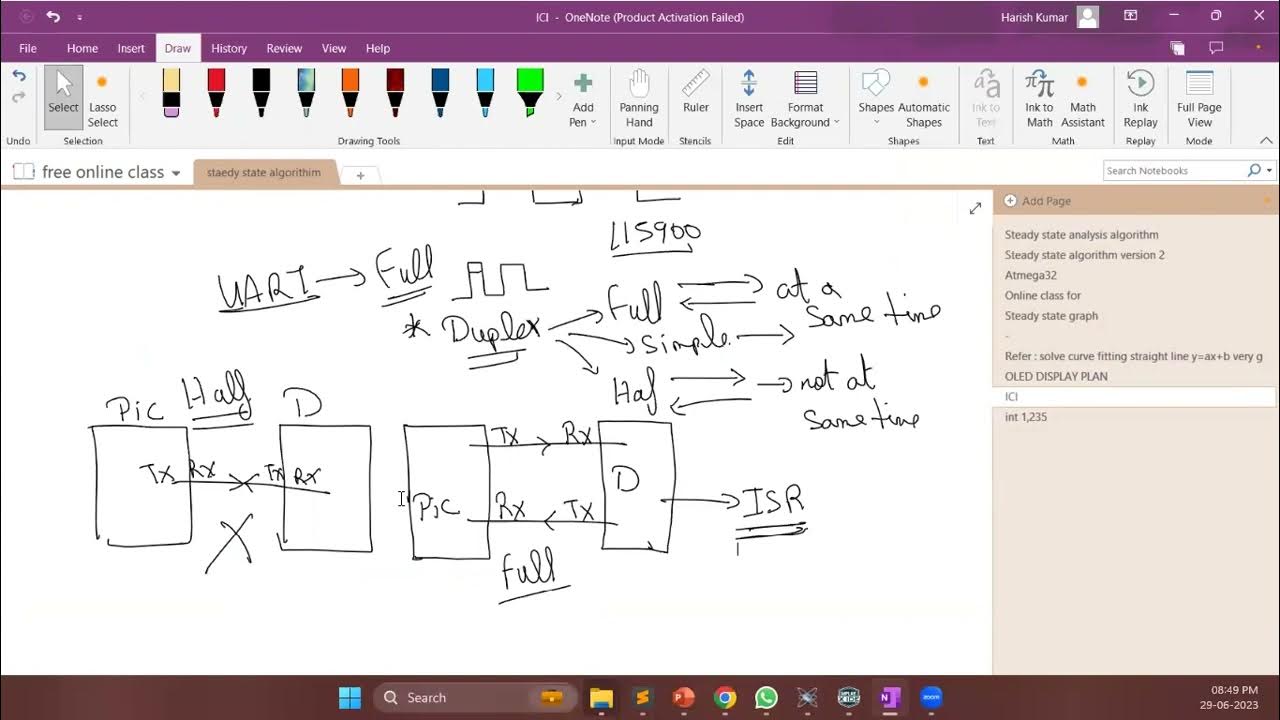 ICI - OneNote (Product Activation Failed)
Harish Kumar
File Home Insert Draw History Review View Help
Select
Lasso Select
Add Pen
Panning Hand
Ruler
Insert Space
Format Background
Shapes
Automatic Shapes
Ink to Text
Ink to Math
Math Assistant
Ink Replay
Full Page View
Undo Selection Drawing Tools Input Mode Stencils Edit Shapes Text Math Replay Mode
free online class
staedy state algorithim
Search Notebooks
Add Page
Steady state analysis algorithm
Steady state algorithm version 2
Atmega32
Online class for
Steady state graph
-
Refer : solve curve fitting straight line y=ax+b very g
OLED DISPLAY PLAN
ICI
int 1,235
115900
UART → Full
* Duplex
Full at a same time
Simple
Haf → not at same time
Half
Pic D
Tx Rx Tx Rx
X
Tx Rx
Pic D
Rx Tx
Full
ISR
Search
zoom
08:49 PM
29-06-2023